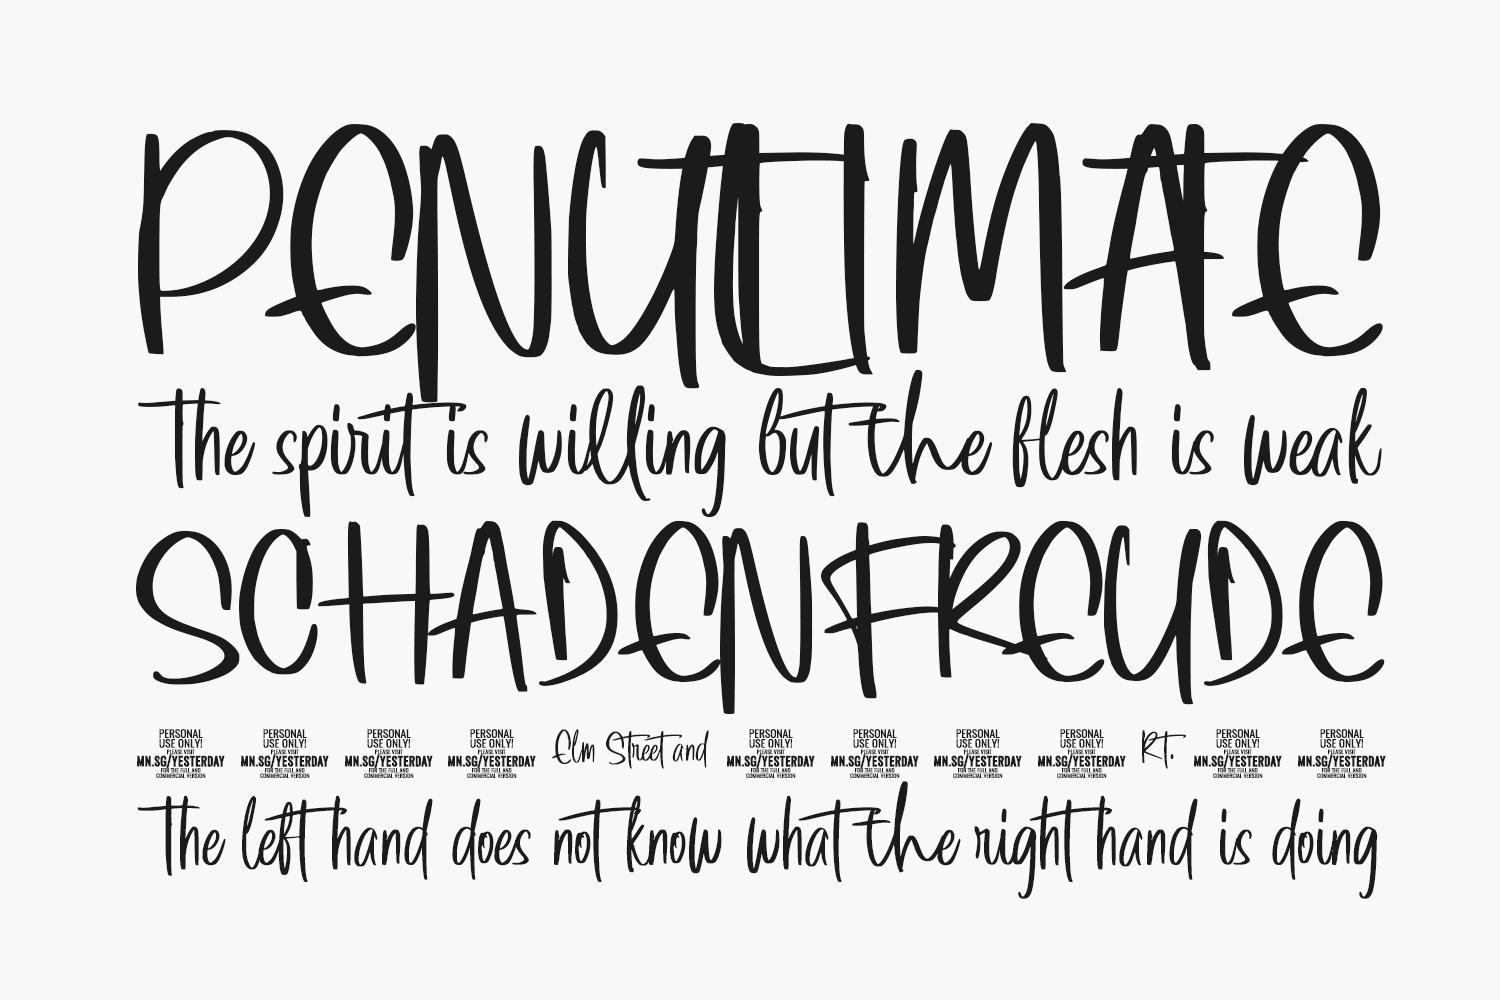 PENULTIMATE
The spirit is willing but the flesh is weak
SCHADENFREUDE
PERSONAL
USE ONLY!
PLEASE VISIT
MN.SG/YESTERDAY
FOR THE FULL AND
COMMERCIAL VERSION
PERSONAL
USE ONLY!
PLEASE VISIT
MN.SG/YESTERDAY
FOR THE FULL AND
COMMERCIAL VERSION
PERSONAL
USE ONLY!
PLEASE VISIT
MN.SG/YESTERDAY
FOR THE FULL AND
COMMERCIAL VERSION
PERSONAL
USE ONLY!
PLEASE VISIT
MN.SG/YESTERDAY
FOR THE FULL AND
COMMERCIAL VERSION
Elm Street and
PERSONAL
USE ONLY!
PLEASE VISIT
MN.SG/YESTERDAY
FOR THE FULL AND
COMMERCIAL VERSION
PERSONAL
USE ONLY!
PLEASE VISIT
MN.SG/YESTERDAY
FOR THE FULL AND
COMMERCIAL VERSION
PERSONAL
USE ONLY!
PLEASE VISIT
MN.SG/YESTERDAY
FOR THE FULL AND
COMMERCIAL VERSION
PERSONAL
USE ONLY!
PLEASE VISIT
MN.SG/YESTERDAY
FOR THE FULL AND
COMMERCIAL VERSION
RT.
PERSONAL
USE ONLY!
PLEASE VISIT
MN.SG/YESTERDAY
FOR THE FULL AND
COMMERCIAL VERSION
PERSONAL
USE ONLY!
PLEASE VISIT
MN.SG/YESTERDAY
FOR THE FULL AND
COMMERCIAL VERSION
The left hand does not know what the right hand is doing